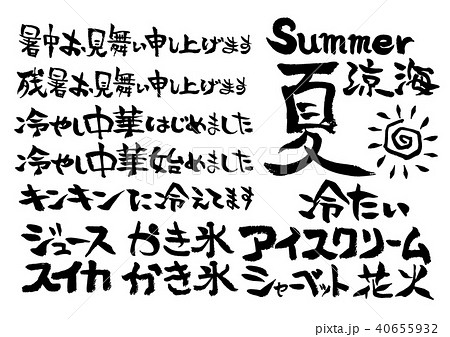 暑中お見舞い申し上げます
残暑お見舞い申し上げます
冷やし中華はじめました
冷やし中華始めました
キンキンに冷えてます
Summer
夏 涼 海
冷たい
ジュース かき氷 アイスクリーム
スイカ かき氷 シャーベット 花火
PIXTA
pixta.jp - 40655932